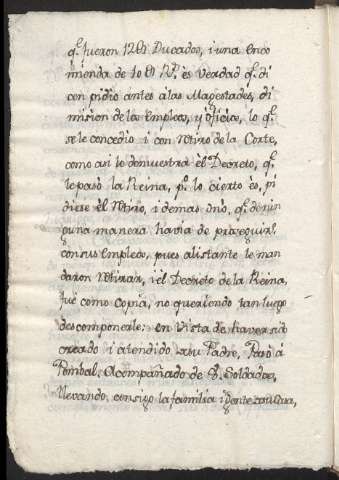 q.e fueron 12@ Ducados, i una enco
mienda de 10@ R.s ès verdad q.e di
con pidio antes àlas Magestades, di
mision de los Empleos, y òficios, lo q.e
se le concedio i con Retiro de la Corte,
como asi lo demuestra èl Decreto, q.e
le pasò la Reina, p.o lo cierto ès, pi
diese èl Retiro, i demas ò no, q.e de nin
guna manera havia de proseguir
con sus Empleos, pues al istante le man
daron Retirar, i èl Decreto de la Reina,
fuè como Copia, no queriendo tan luego
descomponerle; en Vista de haver sido
creado i atendido a su Padre, Pasò à
Pombal, Acompañado de 8. Soldados,
llevando, consigo la familia i gente